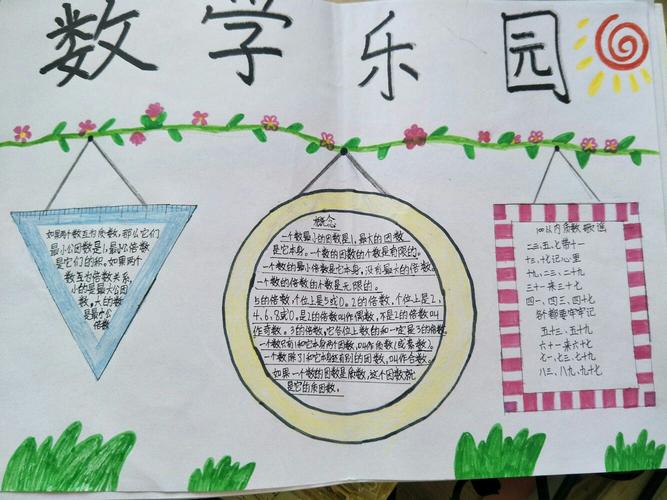 数学乐园
如果两个数互为质数,那么它们
最小公因数是1,最小公倍数
是它们的积。如果两个
数互为倍数关系,
小的是最大公因
数,大的数
是最小公
倍数
概念
一个数最小的因数是1,最大的因数
是它本身。一个数的因数的个数是有限的。
一个数的最小倍数是它本身,没有最大的倍数。
一个数的倍数的个数是无限的。
5的倍数,个位上是5或0。2的倍数,个位上是2、
4、6、8或0。是2的倍数叫作偶数,不是2的倍数叫
作奇数。3的倍数,它各位上数的和一定是3的倍数。
一个数只有1和它本身两个因数,叫作质数(或素数)。
一个数除了1和它本身还有别的因数,叫作合数。
如果一个数的因数是质数,这个因数就
是它的质因数。
100以内质数歌谣
二、三、五、七带十一
十三、十七记心里
十九、二三、二十九
三十一来三十七
四一、四三、四十七
个个都要牢牢记
五十三、五十九
六十一来六十七
七一、七三、七十九
八三、八九、九十七